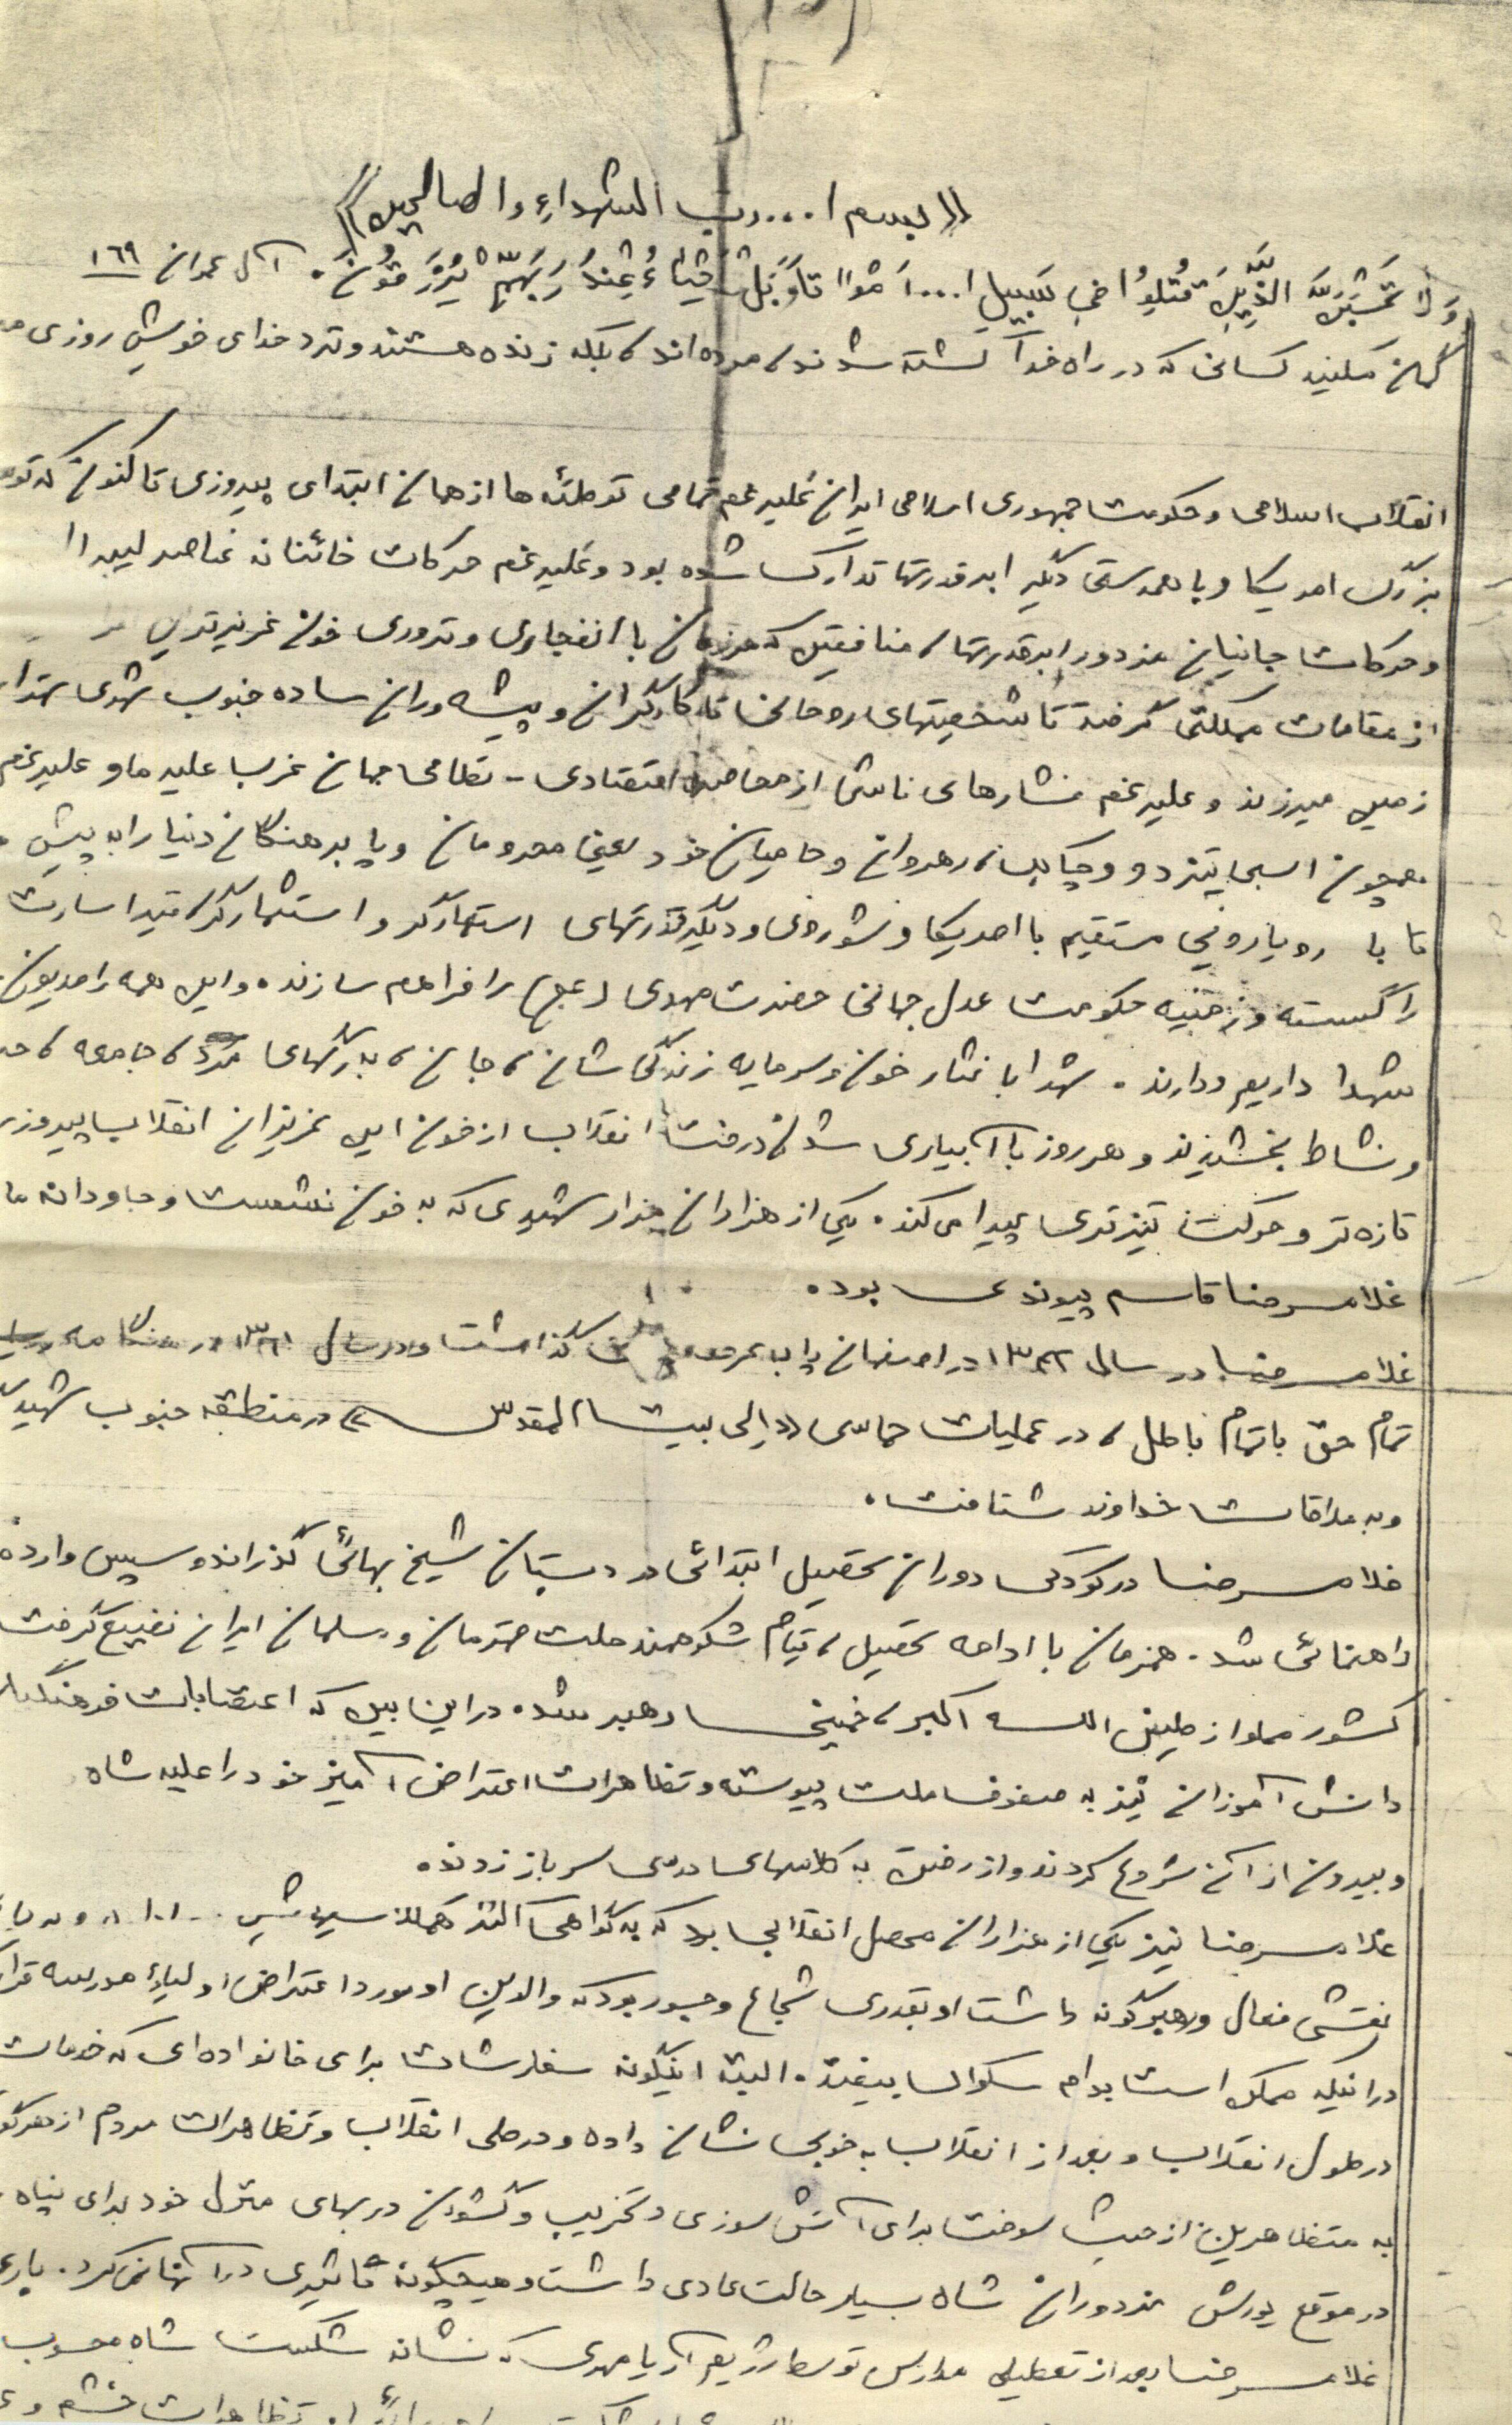 ((بسم ا... رب الشهداء و الصالحین))
وَلا تَحْسَبَنَّ الَّذینَ قُتلِوُا فی سَبیلِ ا... اَمْواتاً بَلْ اَحْیاءٌ عِنْدَ رَبِّهِمْ یُرْزَقُونَ. آل عمران ۱۶۹
گمان مکنید کسانی که در راه خدا کشته شدند، مرده‌اند، بلکه زنده هستند و نزد خدای خویش روزی
انقلاب اسلامی و حکومت جمهوری اسلامی ایران علیرغم تمامی توطئه‌ها از همان ابتدای پیروزی تا کنون که
بزرگ امریکا و با همدستی دیگر ابرقدرتها تدارک شده بود و علیرغم حرکات خائنانه عناصر لیبرا
و حرکات جانیان مزدور ابرقدرتها، منافقین که هرزمان با انفجاری و تروری خون عزیزترین
از مقامات مملکتی گرفته تا شخصیتهای روحانی تا کارگران و پیشه‌وران ساده جنوب شهری
زمین میرزند و علیرغم فشارهای ناشی از محاصره اقتصادی - نظامی جهان غرب علیه ما و علیرغم
همچون اسبی تیزدو و چابک، رهروان و حامیان خود یعنی محرومان و پابرهنگان دنیا را به پیش
تا با رویاروئی مستقیم با امریکا و شوروی و دیگر قدرتهای استعمارگر و استثمارگر، قید اسارت
را گسسته و زمینه حکومت عدل جهانی حضرت مهدی (عج) را فراهم سازند. و این همه را مدیون
شهدا داریم و دارند. شهدا با نثار خون و سرمایه زندگی شان، جان، به رگهای جامعه،
و نشاط بخشیدند و هر روز با آبیاری شدن درخت انقلاب از خون این عزیزان انقلاب پیروزی
تازه‌تر و حرکت تیزتری پیدا می کند. یکی از هزاران هزار شهیدی که به خون نشست و جاودانه ما
غلامرضا قاسم پیوندی بود.
غلامرضا در سال در اصفهان پا به عرصه گذاشت و در سال ۱۳۶۱ در هنگامه
تمام حق با تمام باطل، در عملیات حماسی ((الی بیت المقدس)) در منطقه جنوب شهید
و به ملاقات خداوند شتافت.
غلامرضا در کودکی دوران تحصیل ابتدائی در دبستان شیخ بهائی گذراند و سپس وارد
راهنمائی شد. همزمان با ادامه تحصیل، قیام شکوهمند ملت قهرمان و مسلمان ایران گرفت
کشور مملو از طنین الله اکبر، خمینی رهبر شد. در این بین که اعتصابات
دانش آموزان نیز به صفوف ملت پیوسته و تظاهرات اعتراض آمیز خود را علیه شاه
و بیرون از آن شروع کردند و از رفتن به کلاسهای درسی سر باز زدند.
غلامرضا نیز یکی از هزاران محصل انقلابی بود که به گواهی اکثر
نقشی فعال و رهبرگونه داشت او بقدری شجاع و جسور بود که والدین او مورد اعتراض اولیاء مدرسه
در اینکه ممکن است بدام ساواک بیفتد. البته اینگونه سفارشات برای خانواده‌ای که خدمات
در طول انقلاب و بعد از انقلاب به خوبی نشان داده و در طی انقلاب و تظاهرات مردم از
به متظاهرین از حیث سوخت برای آتش سوزی و تخریب و گشودن دربهای منزل خود برای پناه
در موقع یورش مزدوران شاه بسیار حالت عادی داشت و هیچگونه تاثیری در آنها نمی کرد.
غلامرضا بعد از تعطیلی مدارس توسط رژیم آریامهری که نشانه شکست شاه محسوب